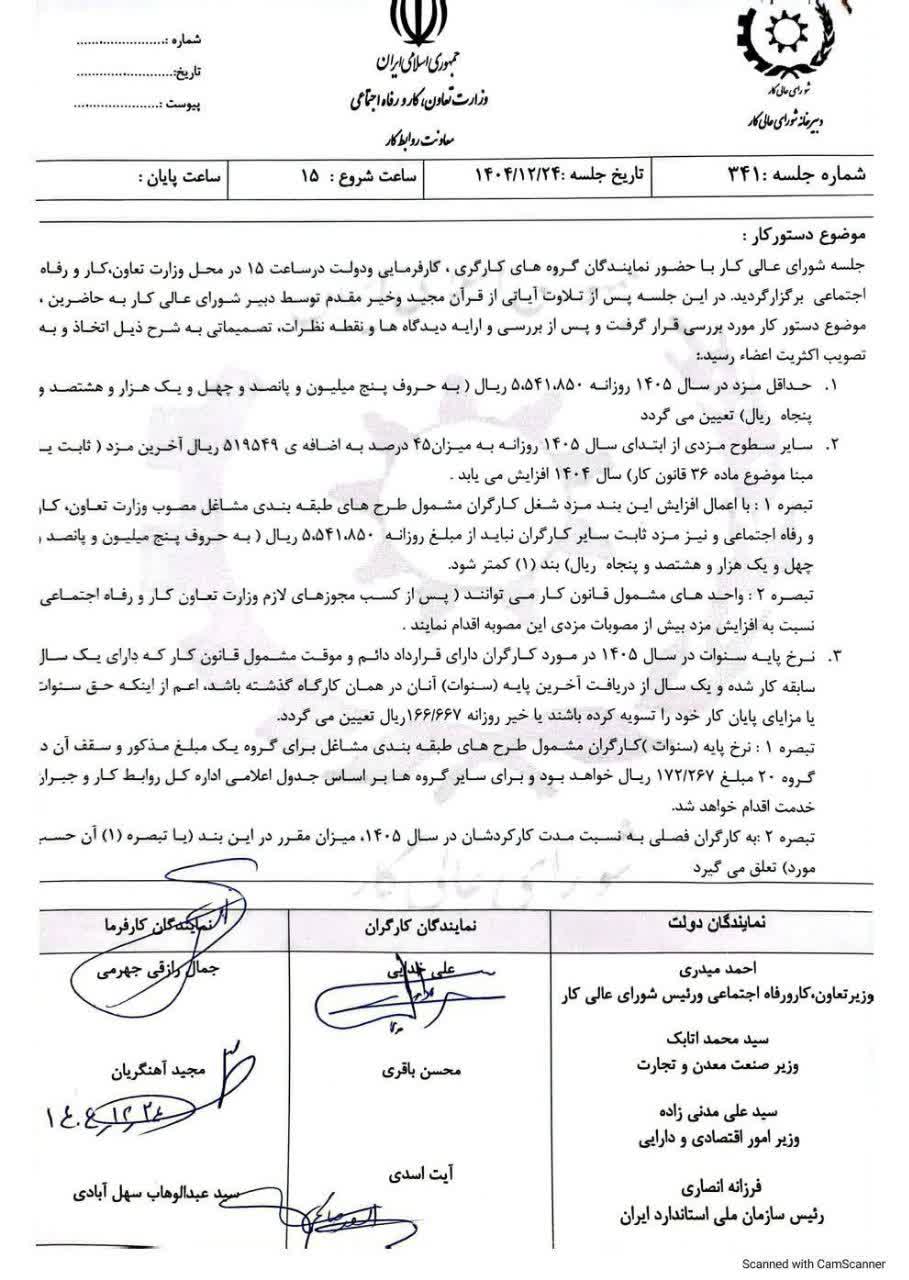 شماره :......................
تاریخ:........................
پیوست :.....................
جمهوری اسلامی ایران
وزارت تعاون، کار و رفاه اجتماعی
معاونت روابط کار
شورای عالی کار
دبیرخانه شورای عالی کار
شماره جلسه :۳۴۱
تاریخ جلسه :۱۴۰۴/۱۲/۲۴
ساعت شروع : ۱۵
ساعت پایان :
موضوع دستورکار :
جلسه شورای عالی کار با حضور نمایندگان گروه های کارگری ، کارفرمایی ودولت درساعت ۱۵ در محل وزارت تعاون،کار و رفاه
اجتماعی برگزارگردید. در این جلسه پس از تلاوت آیاتی از قرآن مجید وخیر مقدم توسط دبیر شورای عالی کار به حاضرین ،
موضوع دستور کار مورد بررسی قرار گرفت و پس از بررسی و ارایه دیدگاه ها و نقطه نظرات، تصمیماتی به شرح ذیل اتخاذ و به
تصویب اکثریت اعضاء رسید.:
۱. حداقل مزد در سال ۱۴۰۵ روزانه ۵،۵۴۱،۸۵۰ ریال ( به حروف پنج میلیون و پانصد و چهل و یک هزار و هشتصد و
پنجاه ریال) تعیین می گردد
۲. سایر سطوح مزدی از ابتدای سال ۱۴۰۵ روزانه به میزان۴۵ درصد به اضافه ی ۵۱۹۵۴۹ ریال آخرین مزد ( ثابت یـ
مبنا موضوع ماده ۳۶ قانون کار) سال ۱۴۰۴ افزایش می یابد .
تبصره ۱ : با اعمال افزایش این بند مزد شغل کارگران مشمول طرح های طبقه بندی مشاغل مصوب وزارت تعاون، کار
و رفاه اجتماعی و نیز مزد ثابت سایر کارگران نباید از مبلغ روزانه ۵،۵۴۱،۸۵۰ ریال ( به حروف پنج میلیون و پانصد و
چهل و یک هزار و هشتصد و پنجاه ریال) بند (۱) کمتر شود.
تبصره ۲ : واحد های مشمول قانون کار می توانند ( پس از کسب مجوزهای لازم وزارت تعاون کار و رفاه اجتماعی
نسبت به افزایش مزد بیش از مصوبات مزدی این مصوبه اقدام نمایند .
۳. نرخ پایه سنوات در سال ۱۴۰۵ در مورد کارگران دارای قرارداد دائم و موقت مشمول قانون کار که دارای یک سال
سابقه کار شده و یک سال از دریافت آخرین پایه (سنوات) آنان در همان کارگاه گذشته باشد، اعم از اینکه حق سنوات
یا مزایای پایان کار خود را تسویه کرده باشند یا خیر روزانه ۱۶۶/۶۶۷ریال تعیین می گردد.
تبصره ۱ : نرخ پایه (سنوات )کارگران مشمول طرح های طبقه بندی مشاغل برای گروه یک مبلغ مذکور و سقف آن د
گروه ۲۰ مبلغ ۱۷۲/۲۶۷ ریال خواهد بود و برای سایر گروه ها بر اساس جدول اعلامی اداره کل روابط کار و جبران
خدمت اقدام خواهد شد.
تبصره ۲ :به کارگران فصلی به نسبت مدت کارکردشان در سال ۱۴۰۵، میزان مقرر در این بند (یا تبصره (۱) آن حسب
مورد) تعلق می گیرد
شورای عالی کار
نمایندگان دولت
نمایندگان کارگران
نمایندگان کارفرما
احمد میدری
وزیرتعاون،کارورفاه اجتماعی ورئیس شورای عالی کار
علی خدایی
جمال رازقی جهرمی
سید محمد اتابک
وزیر صنعت معدن و تجارت
محسن باقری
مجید آهنگریان
۱۴۰۴/۱۲/۲۴
سید علی مدنی زاده
وزیر امور اقتصادی و دارایی
آیت اسدی
سید عبدالوهاب سهل آبادی
فرزانه انصاری
رئیس سازمان ملی استاندارد ایران
Scanned with CamScanner